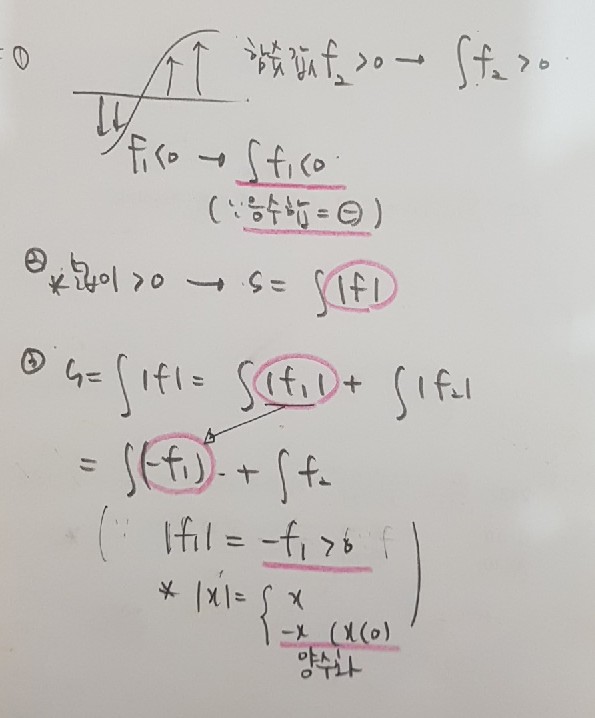 = ① 함숫값 f₂ > 0 → ∫f₂ > 0.
f₁<0 → ∫f₁<0.
(∵음수합 = ⊖)
② *넓이 > 0 → S = ∫|f|
③ S = ∫|f| = ∫|f₁| + ∫|f₂|
= ∫(-f₁) + ∫f₂
(∵ |f₁| = -f₁ > 0)
* |x| = { x
-x (x<0)
양수화